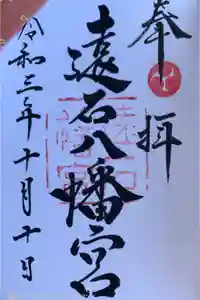 奉拝
遠石八幡宮
令和三年十月十日